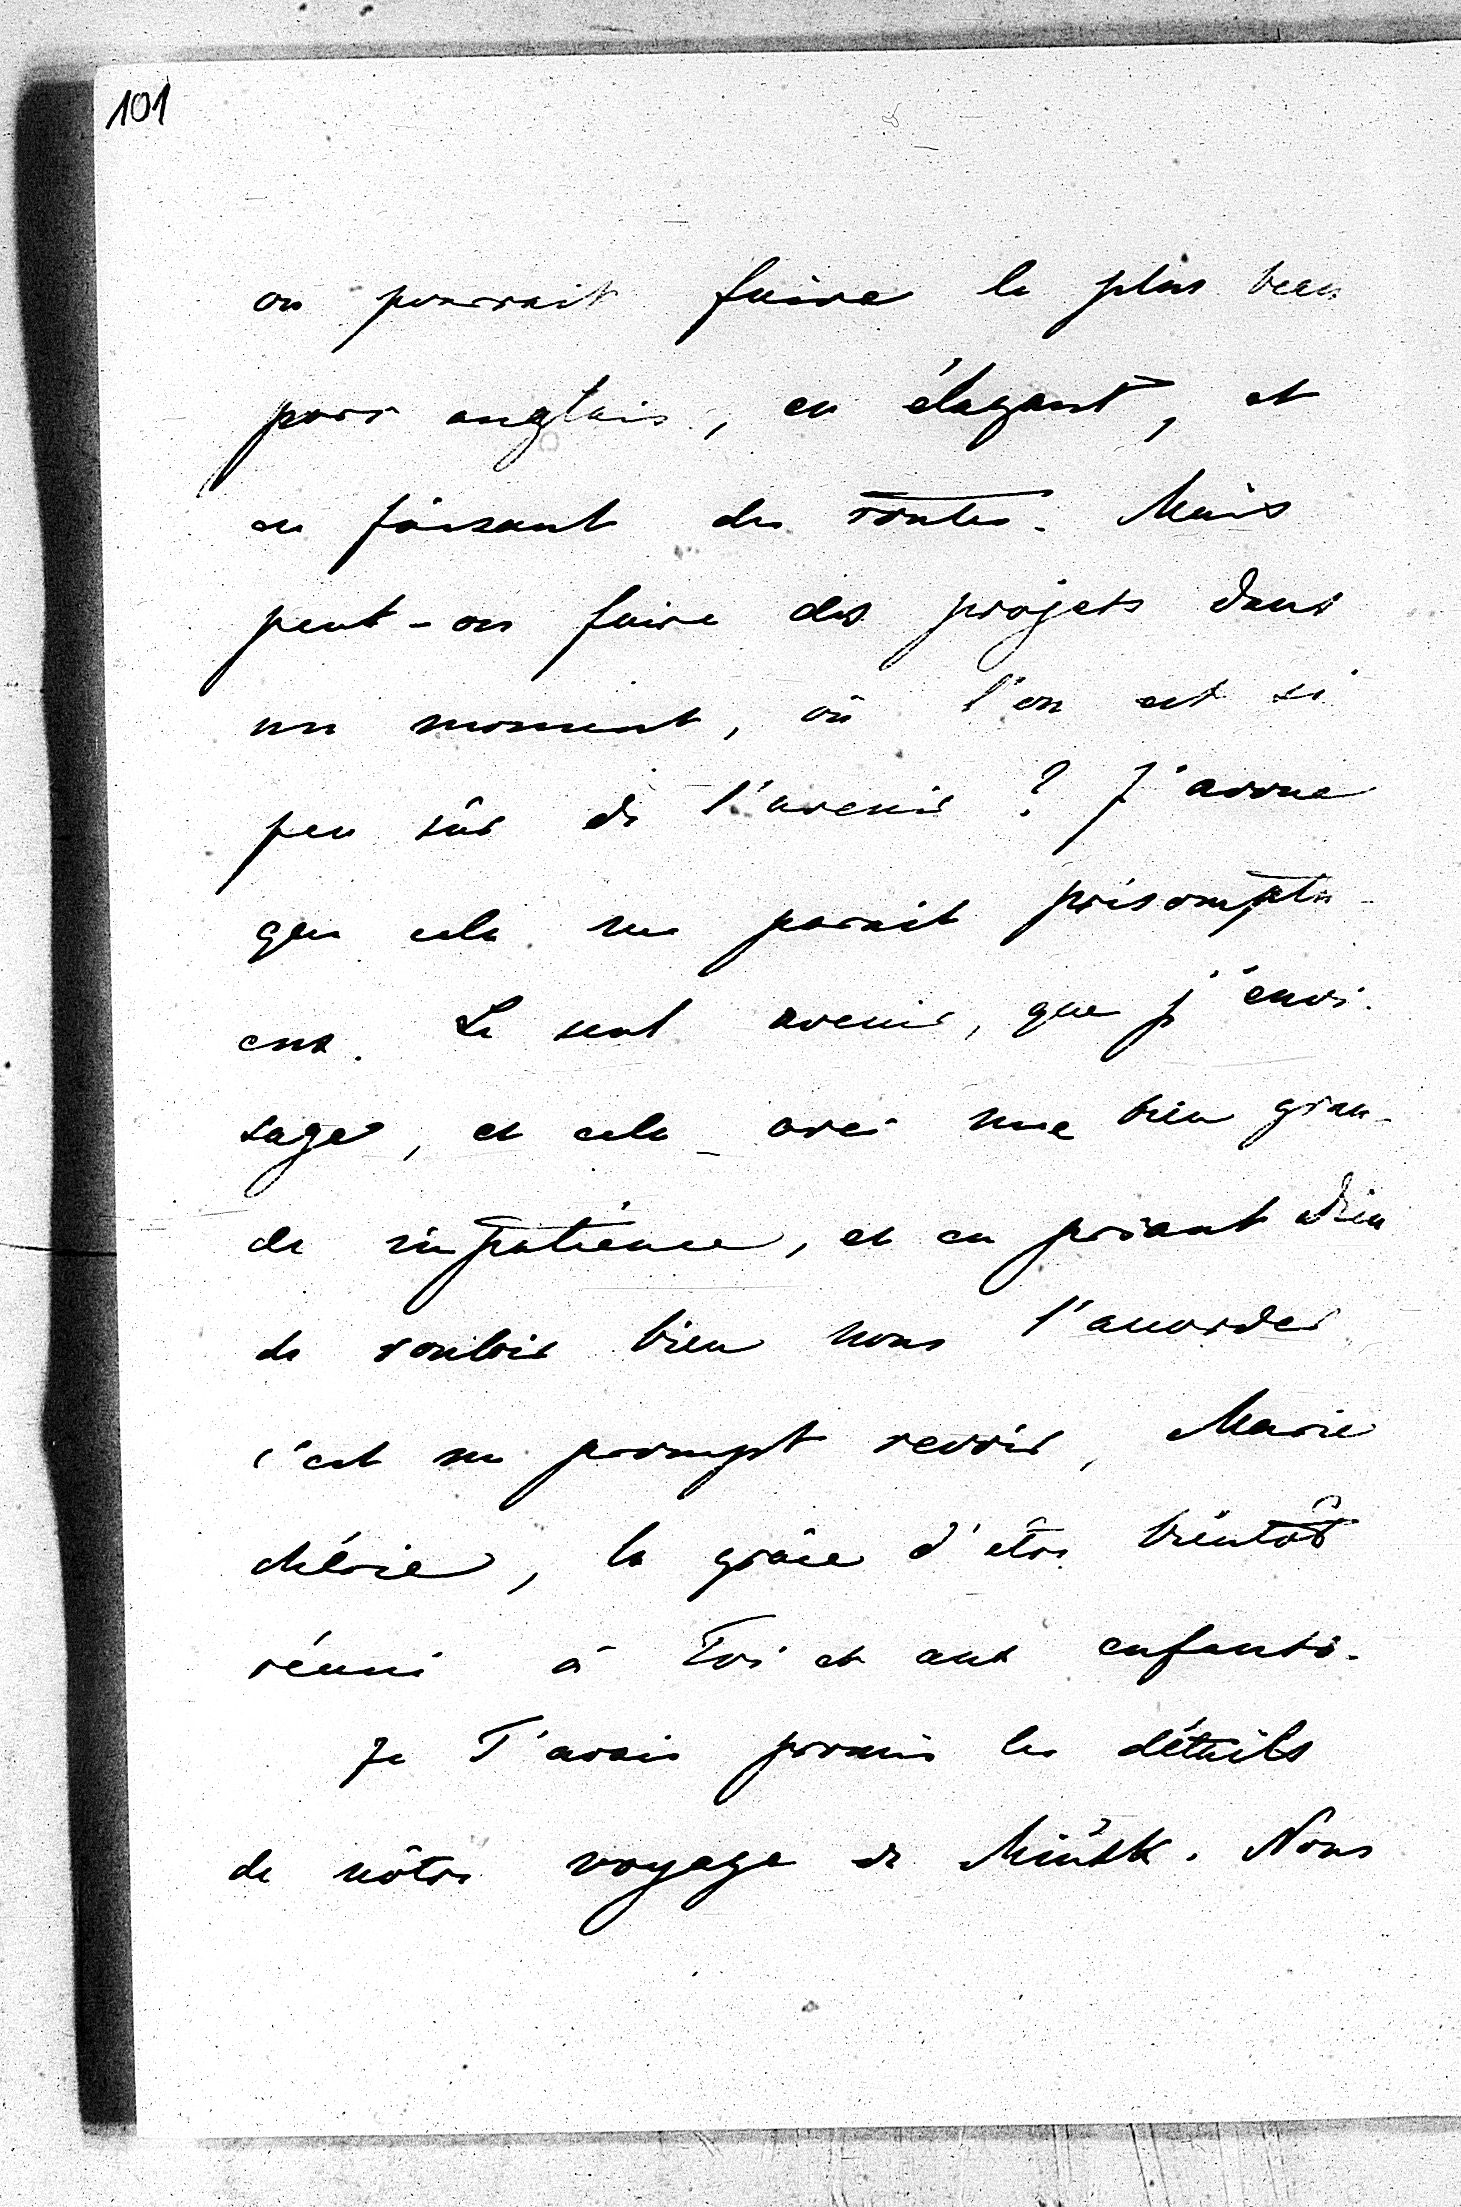 101
on pourrait faire le plus beau
parc anglais, en élagant, et
en faisant des routes. Mais
peut-on faire des projets dans
un moment, où l'on est si
peu sûr de l'avenir ? J'avoue
que cela me parait présomptu-
eux. Le seul avenir, que j'envi-
sage, et cela avec une bien gran-
de impatience, et en priant Dieu
de vouloir bien nous l'accorder
c'est un prompt revoir, Marie
chérie, la grâce d'être bientôt
réuni à Toi et aux enfants.
Je T'avais promis les détails
de nôtre voyage de Minsk. Nous